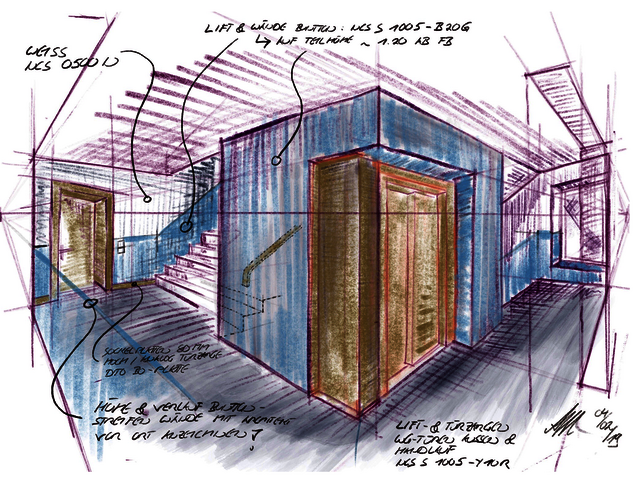 WEISS
NCS 0500 N
LIFT & WÄNDE BLAUTON: NCS S 1005-B20G
↳ AUF TEILHÖHE ~ 1.20 AB FB
SOCKELPLATTEN 80 MM
HOCH / ANALOG TÜRZARGE
DITO
HÖHE & VERLAUF BLAUTON-
STREIFEN WÄNDE MIT ARCHITEKT
VOR ORT ANZEICHNEN!
LIFT- & TÜRZARGEN
WG-TÜREN AUSSEN &
HANDLAUF
NCS S 1005-Y10R